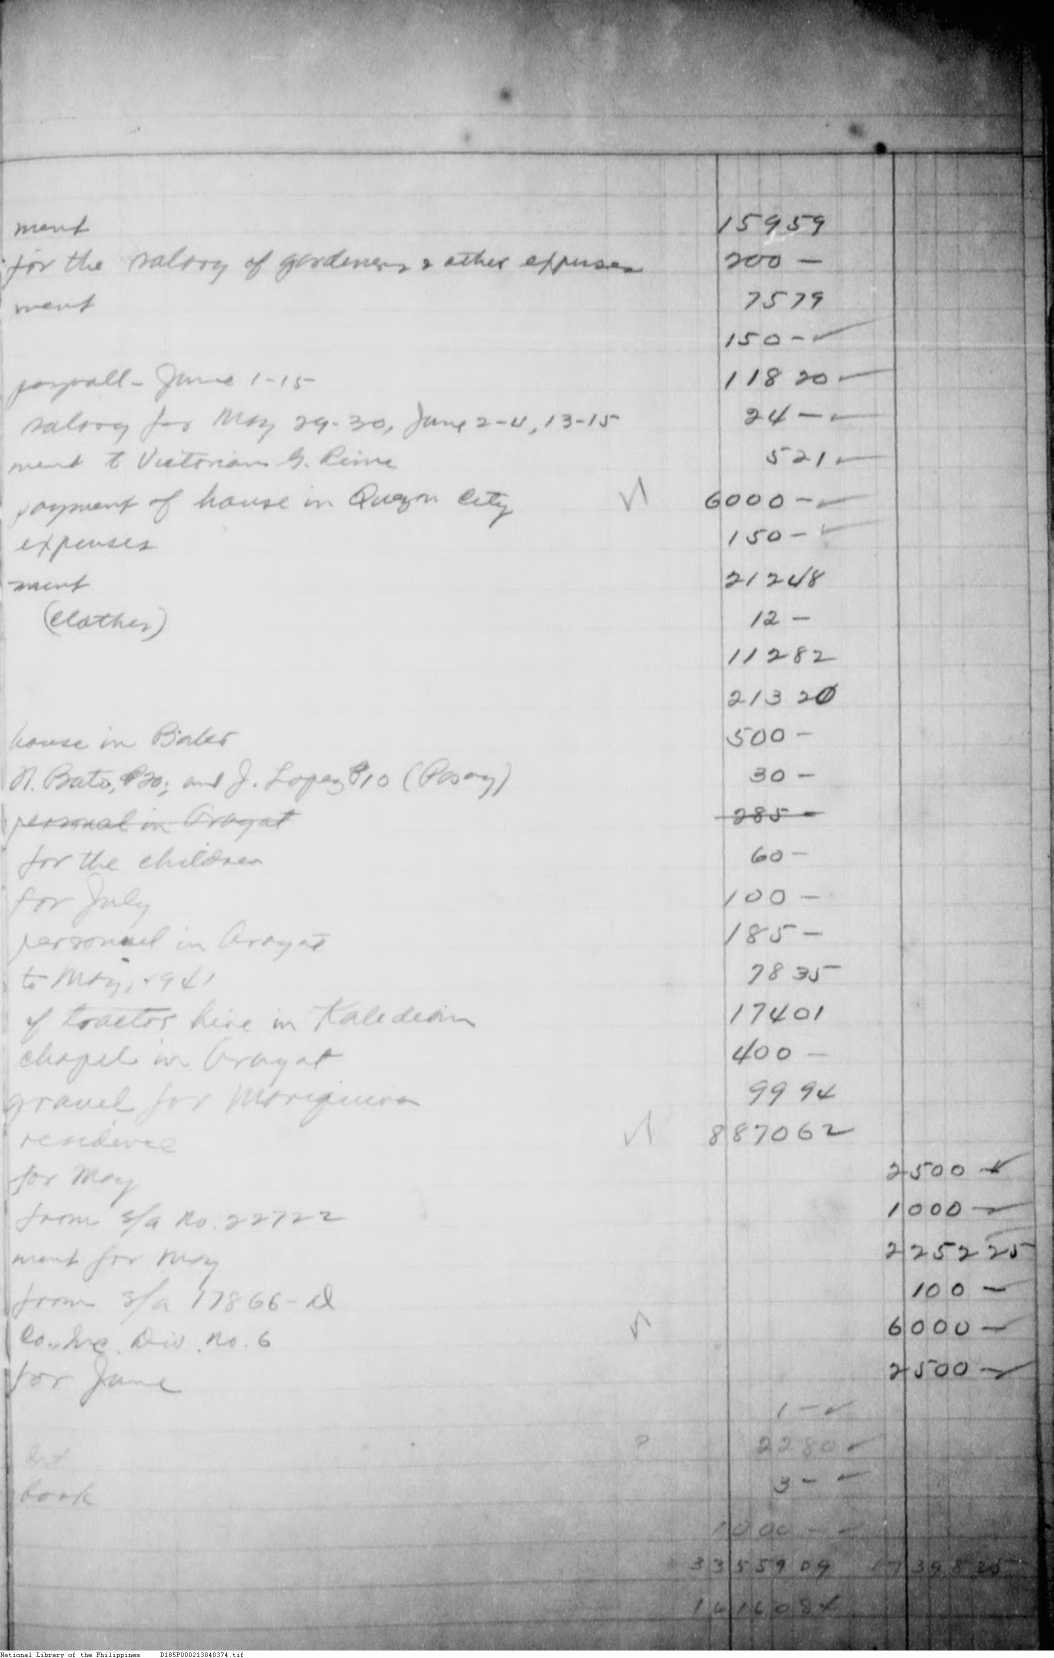 ment 159 59
for the salary of gardeners & other expenses 200 —
ment 75 79
150 — ✓
payroll - June 1-15 118 20 ✓
salary for May 29-30, June 2-4, 13-15 24 — ✓
ment to Victoriano G. 5 21 ✓
payment of house in Quezon City √ 6000 — ✓
expenses 150 — ✓
ment 212 48
(clothes) 12 —
112 82
213 20
house in Baler 500 —
N. Bato, ₱20; and J. Lopez ₱10 (Pasay) 30 —
personal in Arayat 285 —
for the children 60 —
for July 100 —
personnel in Arayat 185 —
to May, 1941 78 35
of tractor hire in Kaledian 174 01
chapel in Arayat 400 —
gravel for Mariquina 99 94
residence √ 8870 62
for May 2500 — ✓
from s/a no. 22722 1000 — ✓
ment for May 2252 25
from s/a 17866-D 100 — ✓
Co. Inc. Div. no. 6 √ 6000 — ✓
for June 2500 — ✓
1 — ✓
? 22 80 ✓
book 3 — ✓
1000 — ✓
33559 09 17398 25
16160 84
National Library of the Philippines D185P000213840374.tif